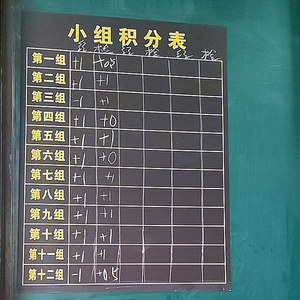 小组积分表
第一组 +1 +0.5
第二组 +1 +1
第三组 -1 +1
第四组 +1 +0
第五组 +1 +1
第六组 +1 +0
第七组 +1 +1
第八组 +1 +1
第九组 +1 +1
第十组 +1 +1
第十一组 +1 +1
第十二组 -1 +0.5